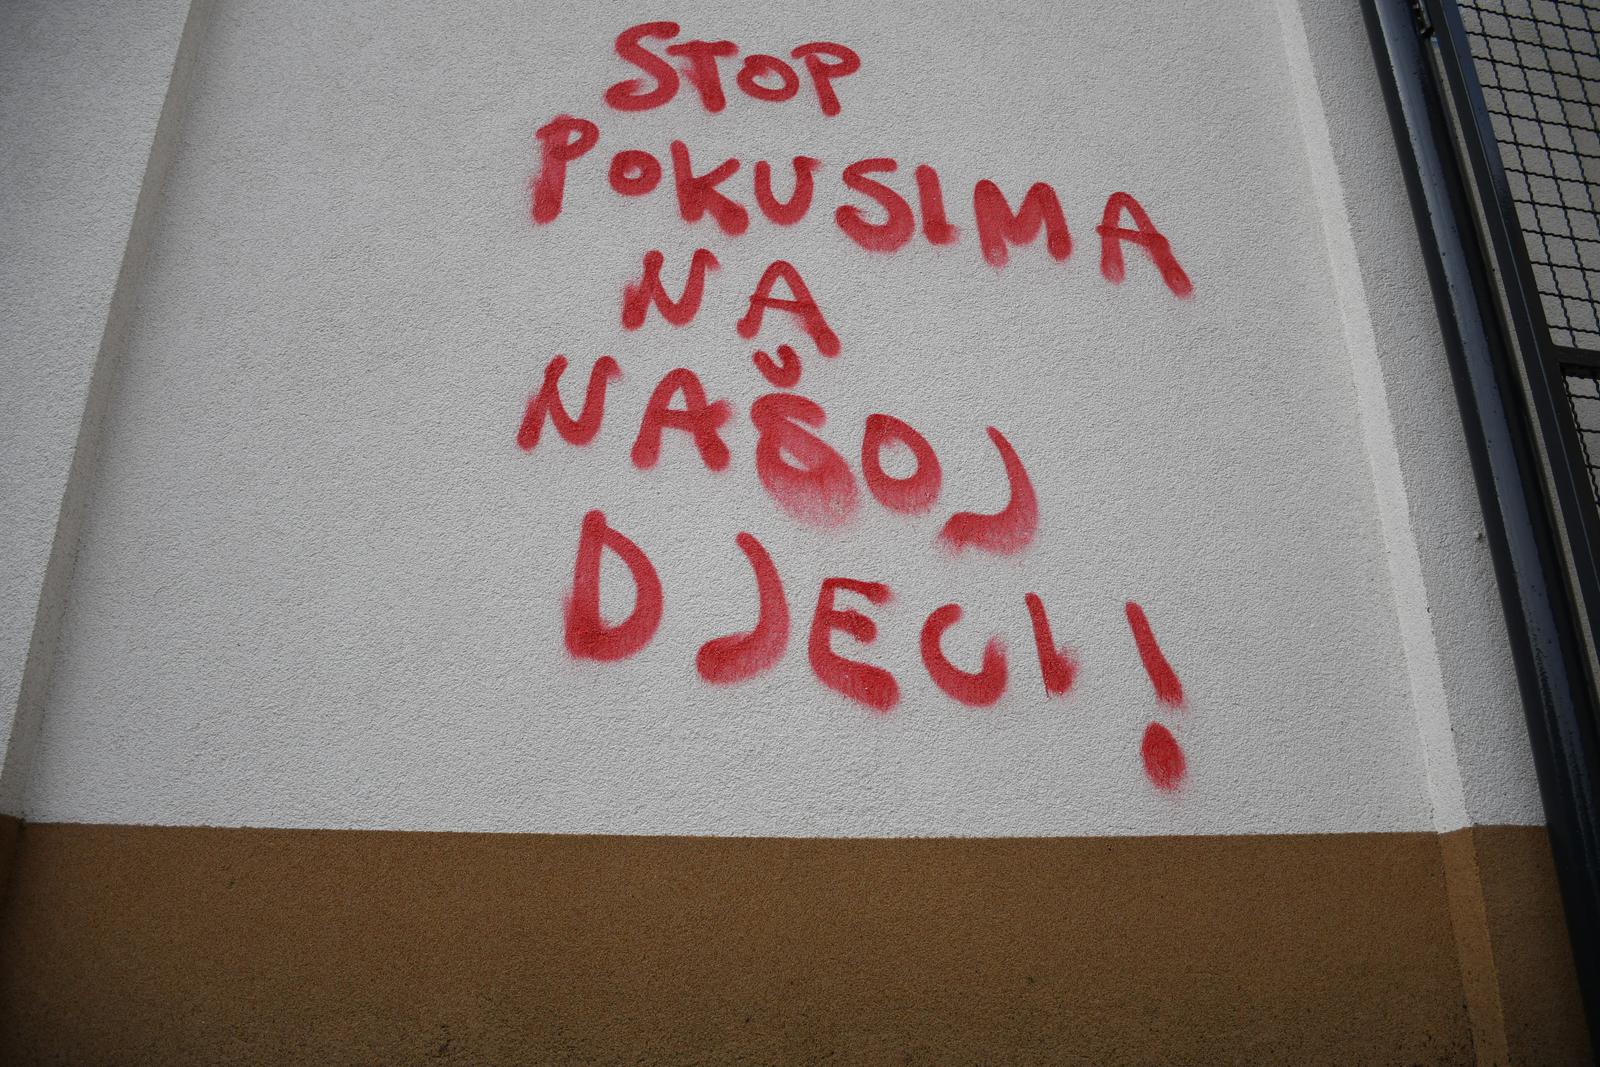 STOP
POKUSIMA
NA
NAŠOJ
DJECI!